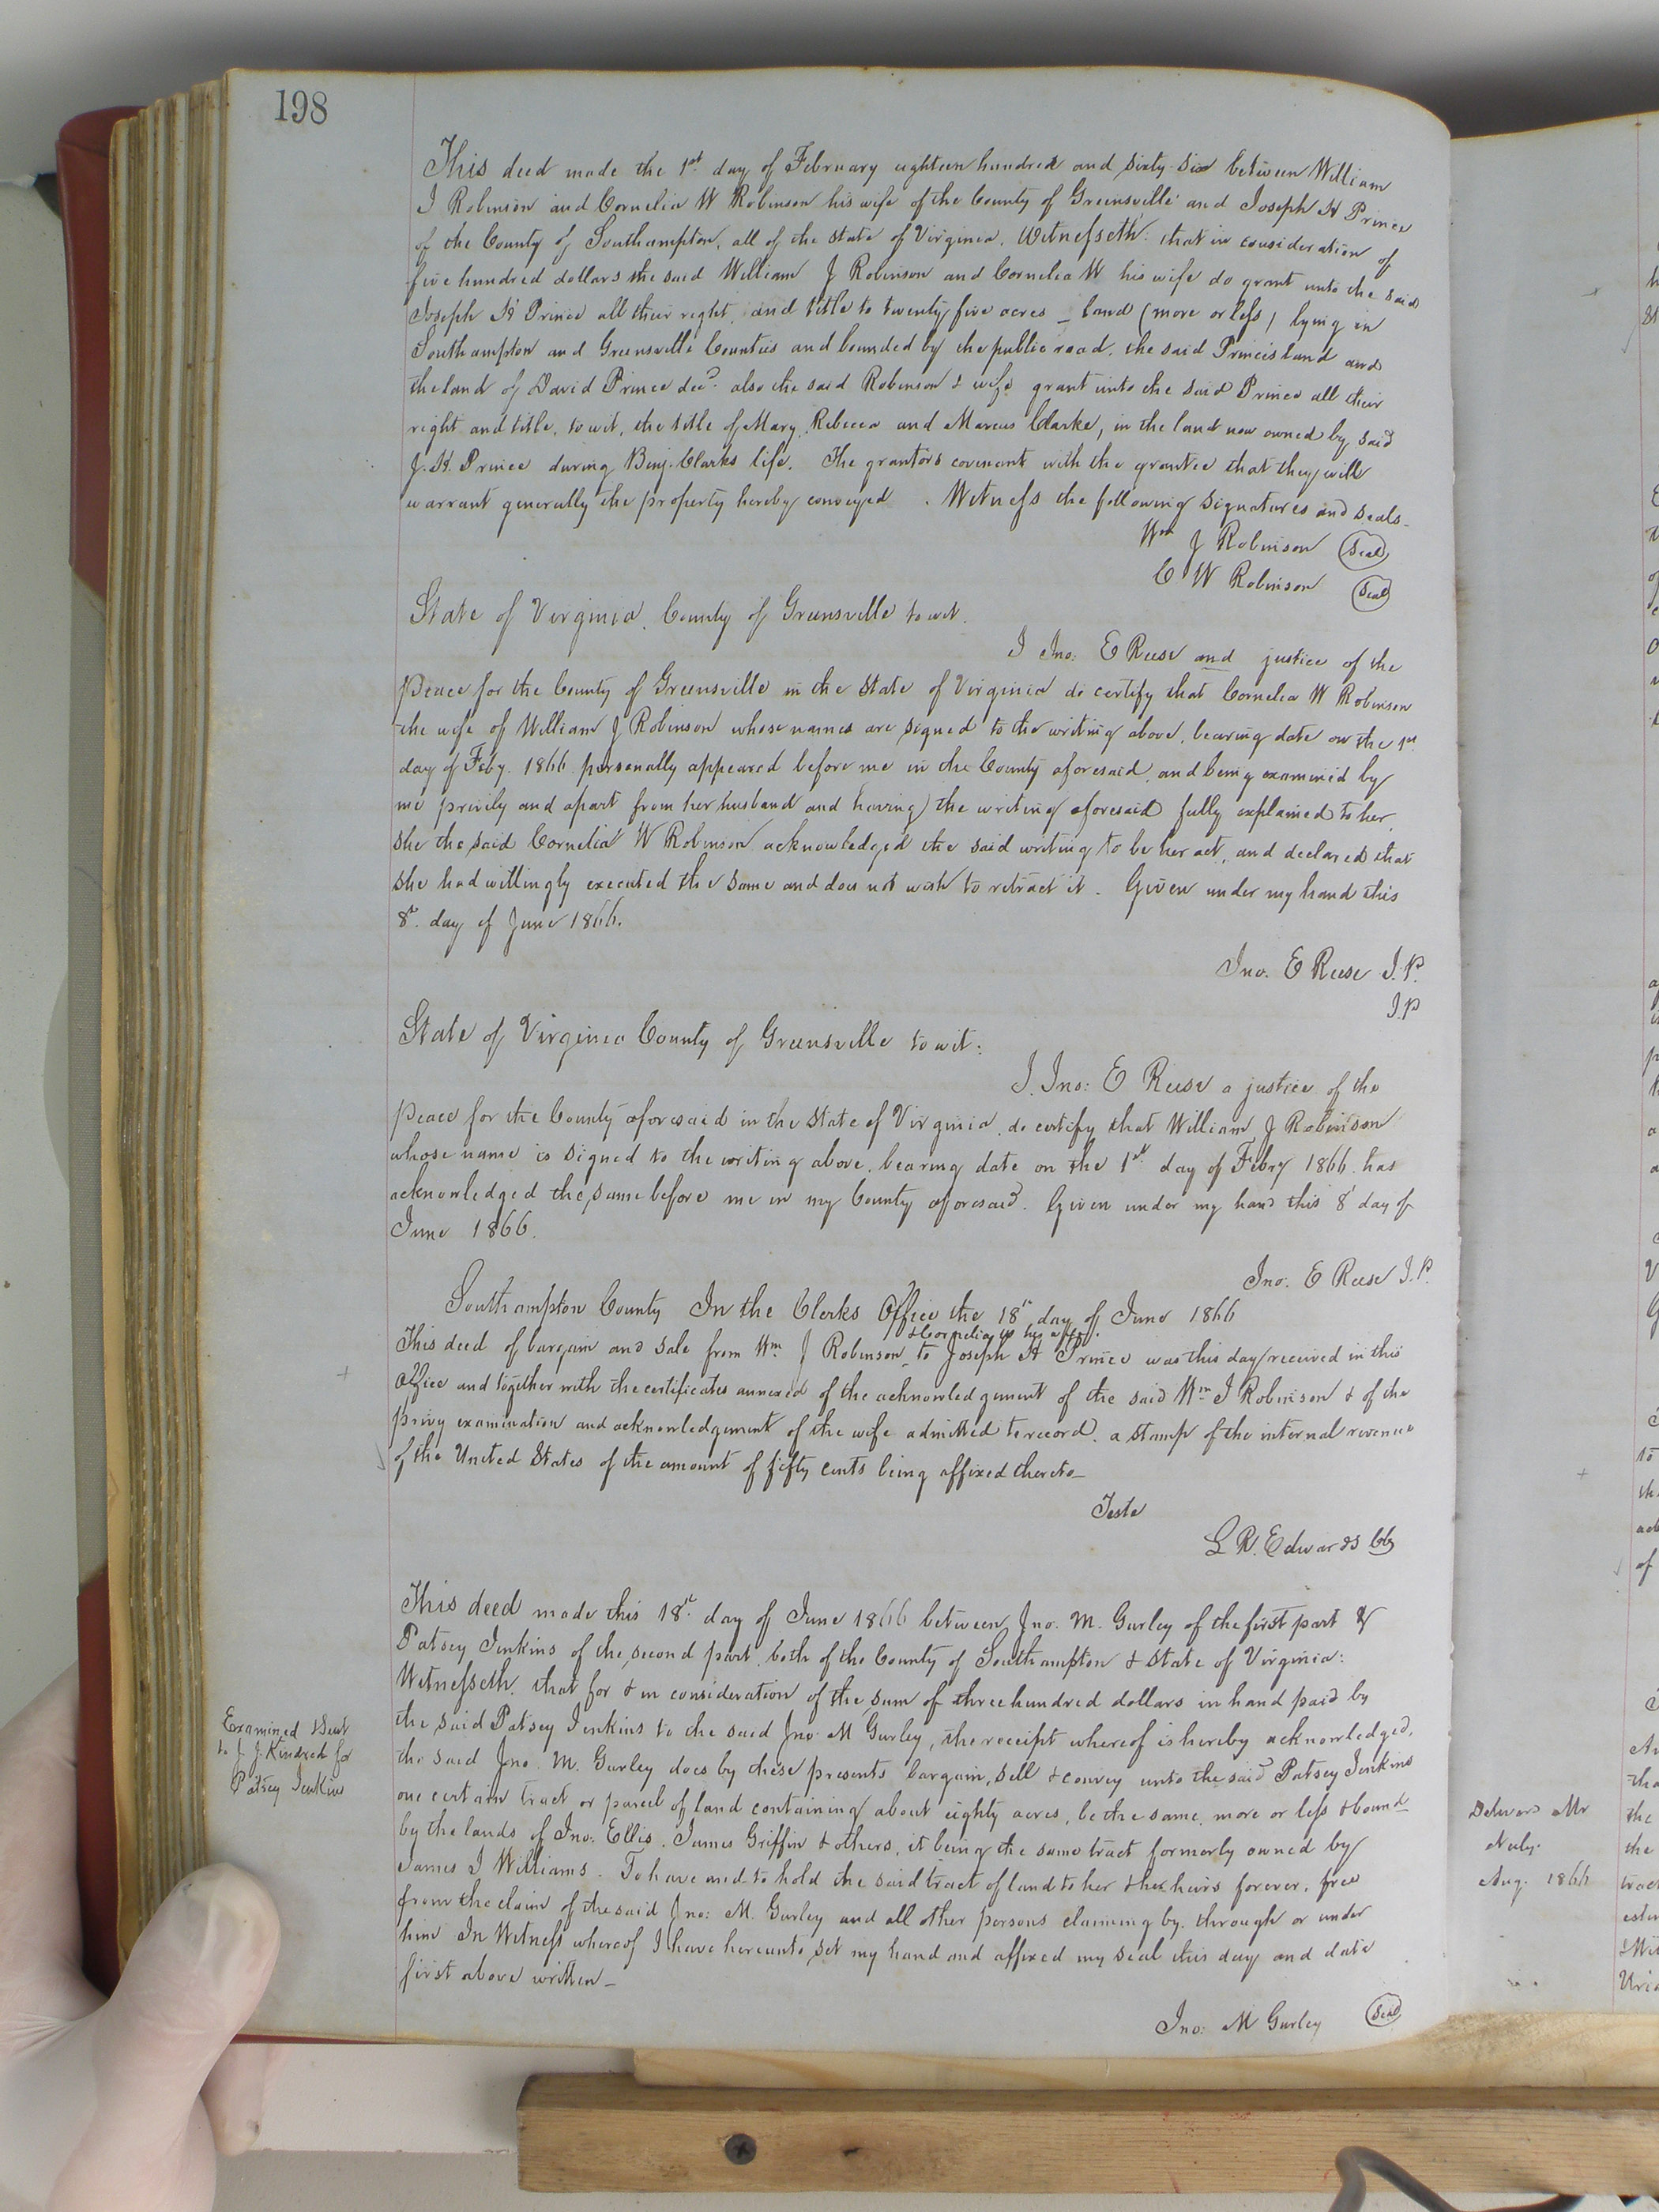 198
This deed made the 1st day of February eighteen hundred and sixty-six between William
J Robinson and Cornelia W Robinson his wife of the County of Greensville and Joseph H Prince
of the County of Southampton, all of the state of Virginia. Witnesseth: that in consideration of
five hundred dollars the said William J Robinson and Cornelia W his wife do grant unto the said
Joseph H Prince all their right, and title to twenty five acres _ land (more or less) lying in
Southampton and Greensville Counties and bounded by the public road, the said Princes land and
the land of David Prince decd. also the said Robinson & wife grant unto the said Prince all their
right and title, to wit, the title of Mary, Rebecca and Marcus Clarke, in the land now owned by said
J. H. Prince during Benj. Clarks life. The grantors covenant with the grantee that they will
warrant generally the property hereby conveyed . Witness the following signatures and seals.
Wm J Robinson (Seal)
C W Robinson (Seal)
State of Virginia, County of Greensville to wit.
I Jno: E Reese and justice of the
Peace for the County of Greensville in the State of Virginia do certify that Cornelia W Robinson
the wife of William J Robinson whose names are signed to the writing above, bearing date on the 1st
day of Feby. 1866 personally appeared before me in the County aforesaid, and being examined by
me privily and apart from her husband and having the writing aforesaid fully explained to her,
she the said Cornelia W Robinson acknowledged the said writing to be her act, and declared that
she had willingly executed the same and does not wish to retract it. Given under my hand this
8th day of June 1866.
Jno. E Reese J.P.
J.P
State of Virginia County of Greensville to wit:
I. Jno: E Reese a justice of the
Peace for the County aforesaid in the State of Virginia, do certify that William J Robinson
whose name is signed to the writing above, bearing date on the 1st day of Febry 1866 has
acknowledged the same before me in my County aforesaid. Given under my hand this 8 day of
June 1866.
Jno: E Reese J.P.
Southampton County In the Clerks Office the 18th day of June 1866
& Cornelia W his wife
This deed of bargain and sale from Wm J Robinson to Joseph H Prince was this day received in this
Office and together with the certificates annexed of the acknowledgement of the said Wm J Robinson & of the
privy examination and acknowledgement of the wife admitted to record. a stamp of the internal revenue
of the United States of the amount of fifty cents being affixed thereto_
Teste
L R. Edwards Clk
This deed made this 18th day of June 1866 between Jno. M. Gurley of the first part &
Patsey Jenkins of the second part, both of the County of Southampton & State of Virginia:
Witnesseth, that for & in consideration of the sum of three hundred dollars in hand paid by
the said Patsey Jenkins to the said Jno M Gurley, the receipt whereof is hereby acknowledged,
the said Jno M. Gurley does by these presents bargain, sell & convey unto the said Patsey Jenkins
one certain tract or parcel of land containing about eighty acres, be the same, more or less & bound_
by the lands of Jno: Ellis, James Griffin & others, it being the same tract formerly owned by
James J Williams. To have and to hold the said tract of land to her & her heirs forever, free
from the claim of the said Jno: M. Gurley and all other persons claiming by, through or under
him In Witness whereof I have hereunto set my hand and affixed my seal this day and date
first above written_
Jno: M Gurley (Seal)
Examined & Sent
to J. J. Kindred for
Patsey Jenkins
Aug. 1866